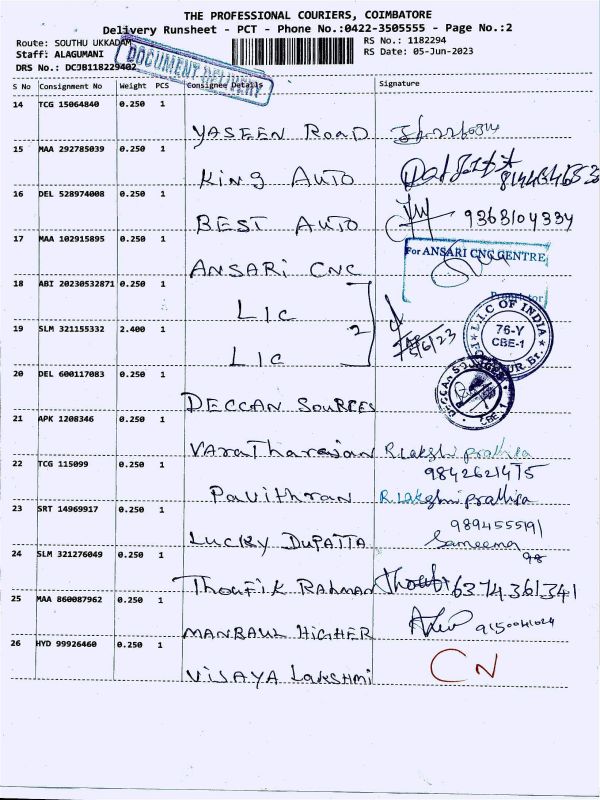 THE PROFESSIONAL COURIERS, COIMBATORE
Delivery Runsheet - PCT - Phone No.:0422-3505555 - Page No.:2
Route: SOUTHU UKKADAM
RS No.: 1182294
Staff: ALAGUMANI
RS Date: 05-Jun-2023
DRS No.: DCJB118229402
DOCUMENT DELIVERY
S No Consignment No Weight PCS Consignee Details Signature
14 TCG 15064840 0.250 1
YASEEN ROAD
15 MAA 292785039 0.250 1
KING AUTO
16 DEL 528974008 0.250 1
BEST AUTO 9363104334
17 MAA 102915895 0.250 1
For ANSARI CNC CENTRE
ANSARI CNC
Proprietor
18 ABI 20230532871 0.250 1
LIC
2
5/6/23
L.I.C OF INDIA
76-Y
CBE-1
19 SLM 321155332 2.400 1
LIC
20 DEL 600117083 0.250 1
DECCAN SOURCES
CBE-1
21 APK 1208346 0.250 1
Varatharajan R Lakshi prathipa
9842621475
22 TCG 115099 0.250 1
Pavithran R Lakshmi prathipa
23 SRT 14969917 0.250 1
9894555191
LUCKY DUPATTA Sameema
98
24 SLM 321276049 0.250 1
THOUFIK RAHMAN Thoufi 6374361341
25 MAA 860087962 0.250 1
MANBAUL HIGHER 9150041024
26 HYD 99926460 0.250 1
VIJAYA LAKSHMI CN